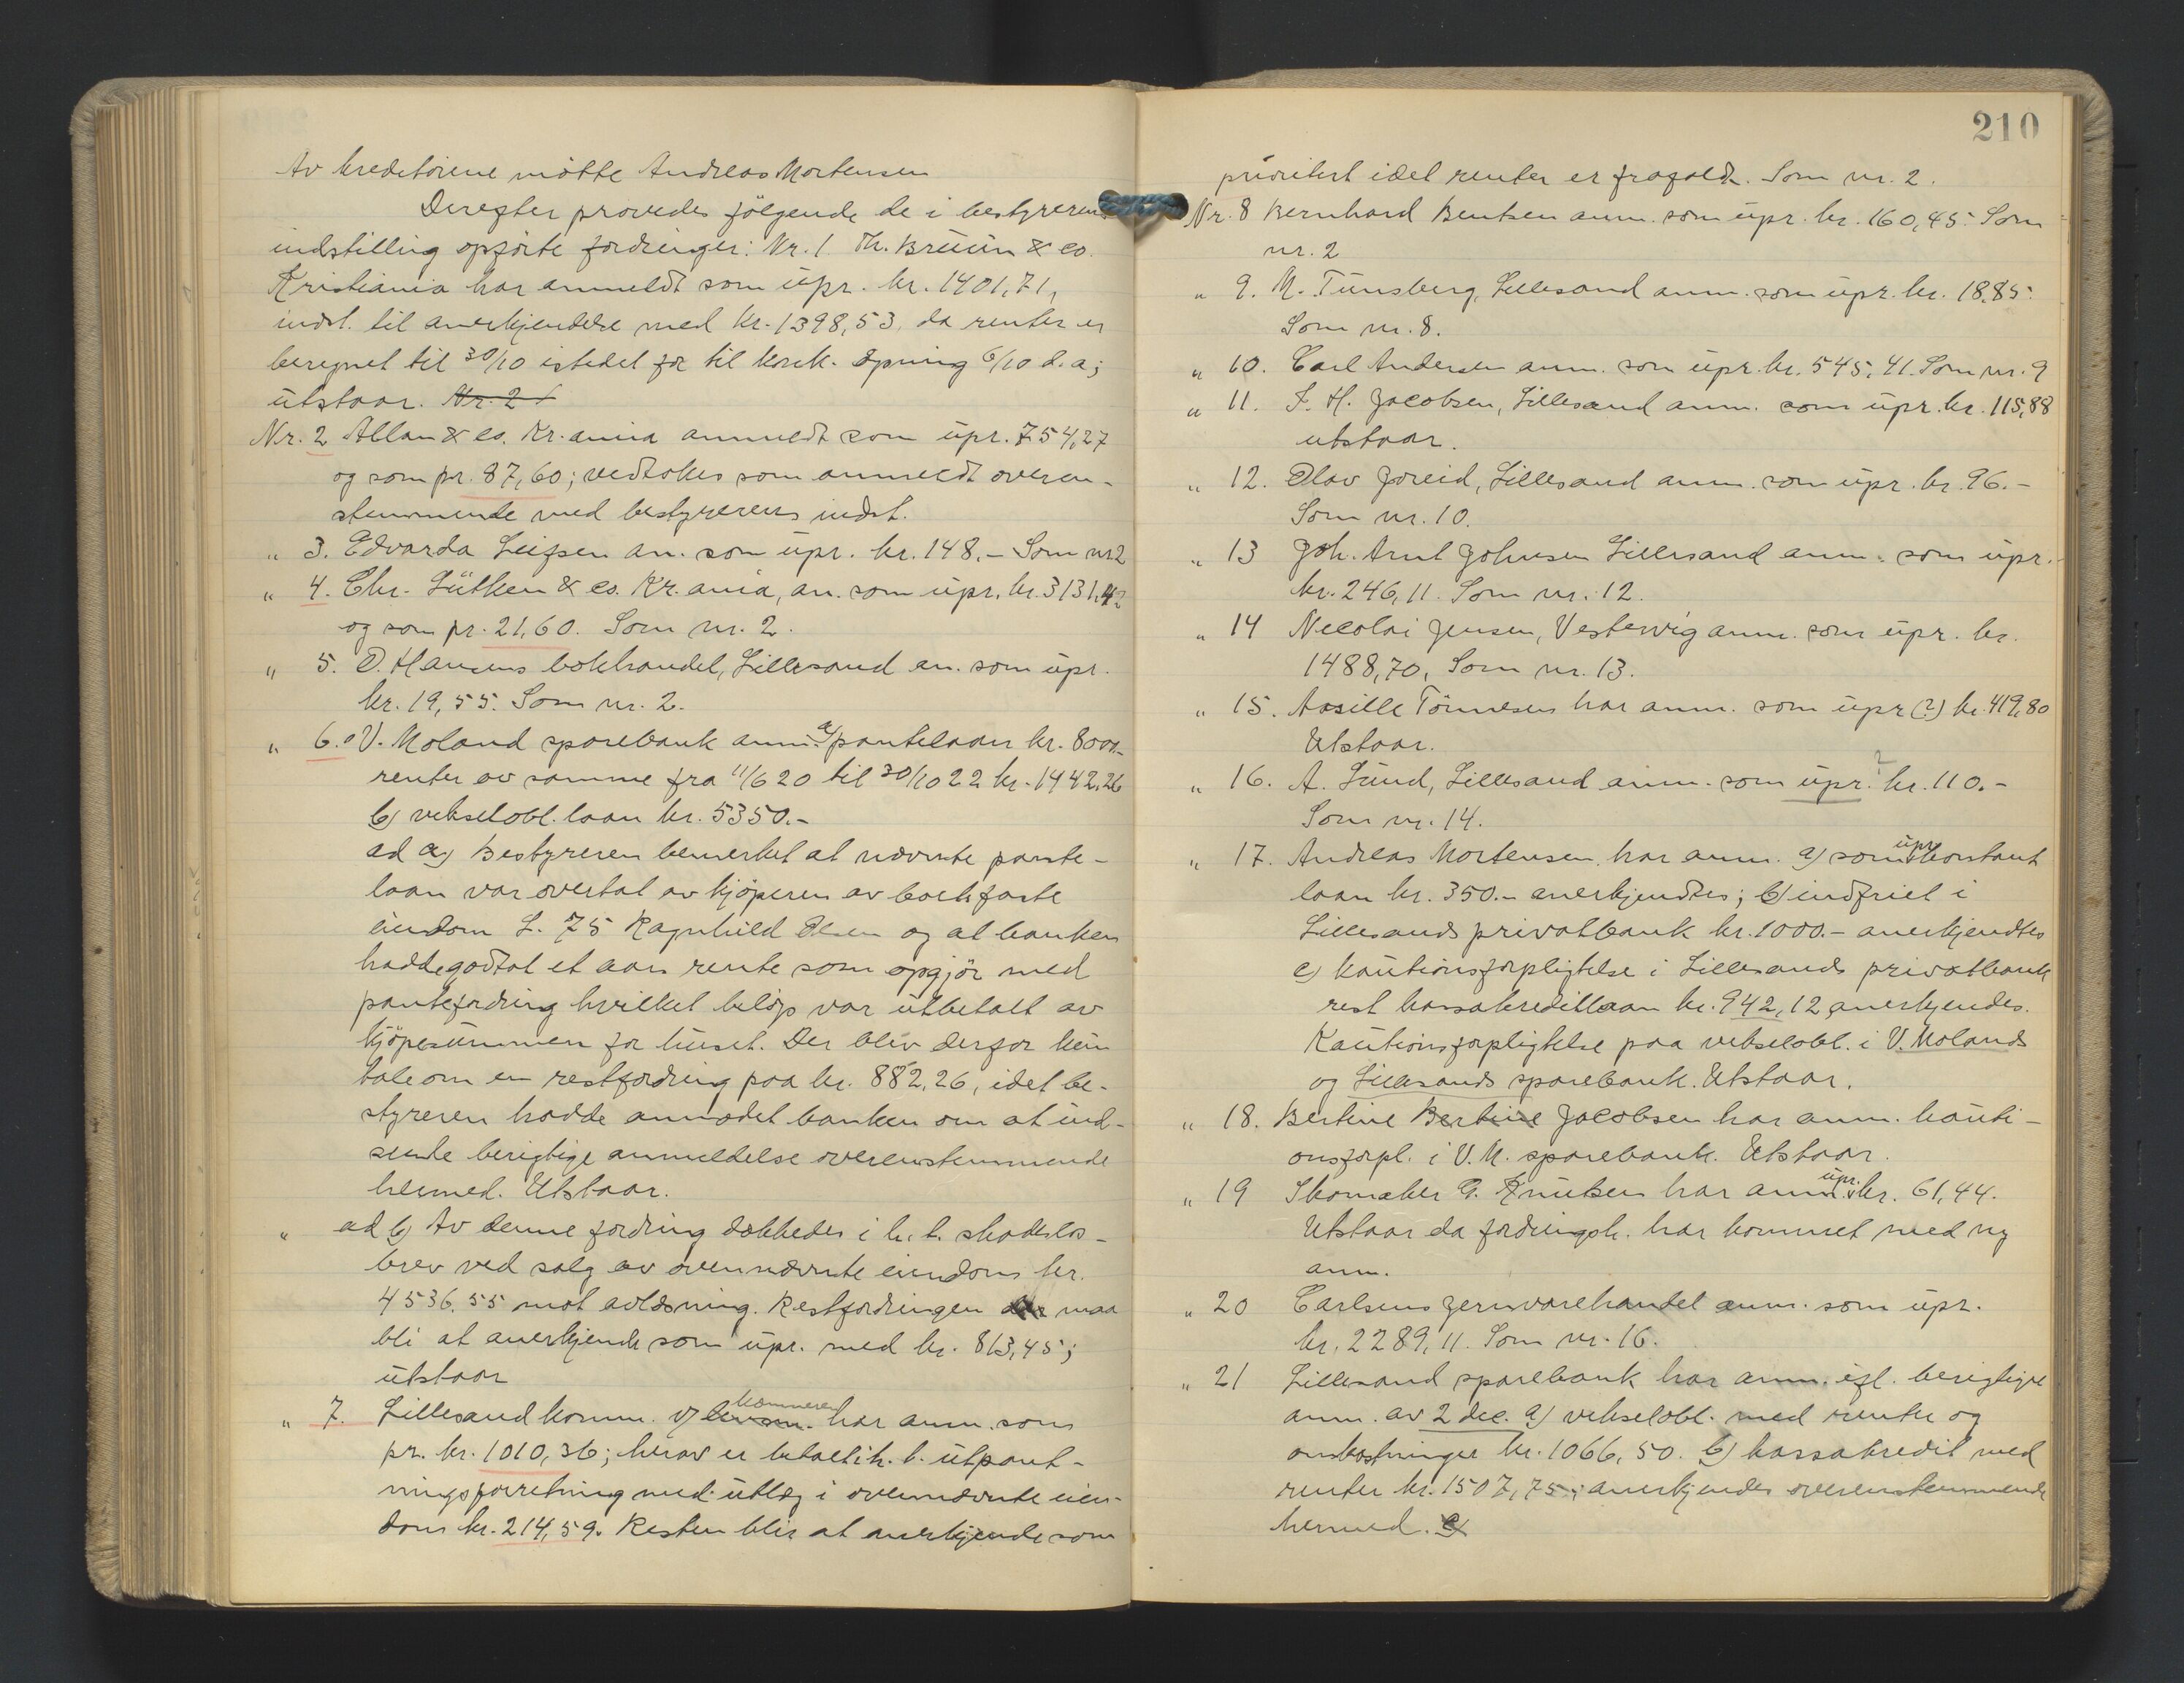 Av kreditorene møtte Andreas Mortensen
Derefter prøvedes følgende de i bestyrerens
indstilling opførte fordringer: Nr. 1 Th. Bruun & co.
Kristiania har anmeldt som upr. kr. 1401,71,
indst. til anerkjendelse med kr. 1398,53, da renter er
beregnet til 30/10 istedet for til konk. åpning 6/10 d.a;
utstaar. Nr. 2
Nr. 2 Allan & co. Kr.ania anmeldt som upr. 754,27
og som pr. 87,60; vedtokes som anmeldt overen-
stemmende med bestyrerens indst.
" 3. Edvarda Leifsen an. som upr. kr. 148.- Som nr 2
" 4. Chr. Lütken & co. Kr.ania, an. som upr. kr. 3131,42
og som pr. 21,60. Som nr. 2.
" 5. O. Hansens bokhandel, Lillesand an. som upr.
kr. 19,55. Som nr. 2.
" 6. V. Moland sparebank anm. a) pantelaan kr. 8000.-
renter av samme fra 11/6 20 til 30/10 22 kr. 1442,26
b) vekselobl. laan kr. 5350.-
ad a) Bestyreren bemerket at nævnte pante-
laan var overtat av kjøperen av boets faste
eiendom L. 75 Ragnhild Olsen og at banken
hadde godtat et aars rente som opgjør med
pantefordring hvilket beløp var utbetalt av
kjøpesummen for huset. Der blev derfor kun
tale om en restfordring paa kr. 882,26, idet be-
styreren hadde anmodet banken om at ind-
sende berigtige anmeldelse overenstemmende
hermed. Utstaar.
" ad b) Av denne fordring dækkedes i h. t. skadeslos-
brev ved salg av ovennævnte eiendom kr.
4536.55 mot avløsning. Restfordringen maa
bli at anerkjende som upr. med kr. 813,45;
utstaar
" 7. Lillesand komm. v/ kæmneren har anm. som
pr. kr. 1010,36; herav er betalt i h. t. utpant-
ningsforretning med utlæg i ovennævnte eien-
dom kr. 214,59. Resten blir at anerkjende som
210
prioritert idet renter er frafaldt. Som nr. 2.
Nr. 8 Bernhard Bentsen anm. som upr. kr. 160,45. Som
nr. 2
" 9. M. Tunsberg, Lillesand anm. som upr. kr. 18,85.
Som nr. 8.
" 10. Carl Andersen anm. som upr. kr. 545,41. Som nr. 9
" 11. F. H. Jacobsen, Lillesand anm. som upr. kr. 115,88
utstaar.
" 12. Olav Joreid, Lillesand anm. som upr. kr. 96.-
Som nr. 10.
" 13 Joh. Arnt Johnsen Lillesand anm. som upr.
kr. 246,11. Som nr. 12.
" 14 Necolai Jensen, Vestervig anm. som upr. kr.
1488,70, Som nr. 13.
" 15. Aasille Tønnesen har anm. som upr (?) kr. 419,80
Utstaar.
" 16. A. Lund, Lillesand anm. som upr. ? kr. 110.-
Som nr. 14.
" 17. Andreas Mortensen har anm. a) som upr. kontant
laan kr. 350.- anerkjendtes; b) indfriet i
Lillesands privatbank kr. 1000.- anerkjendtes
c) kautionsforpligtelse i Lillesands privatbank
rest kassakreditlaan kr. 942,12 anerkjendes.
Kautionsforpligtelse paa vekselobl. i V. Molands
og Lillesands sparebank. Utstaar.
" 18. Bertine Bertine Jacobsen har anm. kauti-
onsforpl. i V. M. sparebank. Utstaar.
" 19 Skomaker G. Knutsen har anm. upr. kr. 61,44.
Utstaar da fordringsh. har kommet med ny
anm.
" 20 Carlsens jernvarehandel anm. som upr.
kr. 2289,11. Som nr. 16.
" 21 Lillesand sparebank har anm. ifl. berigtiget
anm. av 2 dec. a) vekselobl. med renter og
omkostninger kr. 1066,50. b) kassakredit med
renter kr. 1507,75; anerkjendes overenstemmende
hermed.